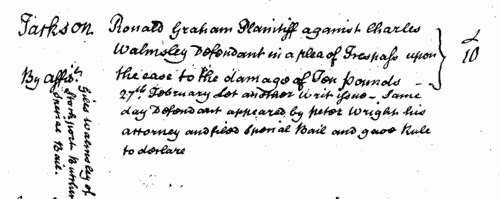 Jackson. Ronald Graham Plaintiff against Charles
Walmsley Defendant in a plea of Trespass upon
the case to the damage of Ten pounds
£
10
By affit.
27th February let another Writ issue - Same
day Defendant appeared by Peter Wright his
attorney and filed special Bail and gave Rule
to declare
Giles Walmsley of
Stockport
Special Bail.